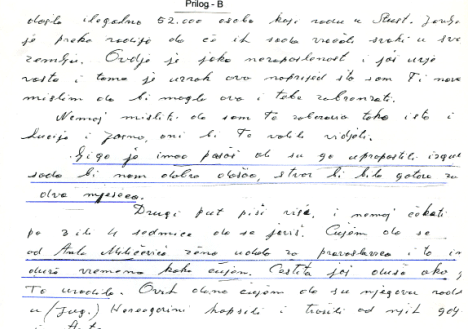 Prilog - B
došlo ilegalno 52.000 osoba koji rade u
je preko radija da će ih sada vraćati svaki u sve
zemlju. Ovdje je jako nezaposlenost i još uvije
raste i tome je uzrok ovo naprijed što sam Ti nave
mislim da bi moglo ovo i tebe
Nemoj misliti da sam Te zaboravio tako isto i
Lucija i oni bi Te voljeli vidjeti.
Gigo je imao pasoš ali su ga upropastili
sada bi nam dobro došao, stvar bi bila gotova za
dva mjeseca.
Drugi put piši više, i nemoj čekati
po 3 ili 4 sedmice da se javiš. Čujem da se
od Ante žena udala za pravoslavca i to in
vremena kako čujem. Čestita joj duša ako
To uradila. Ovih dana čujem da su njegovu
u (Jug.) Hercegovini hapsili i tražili od njih gdje